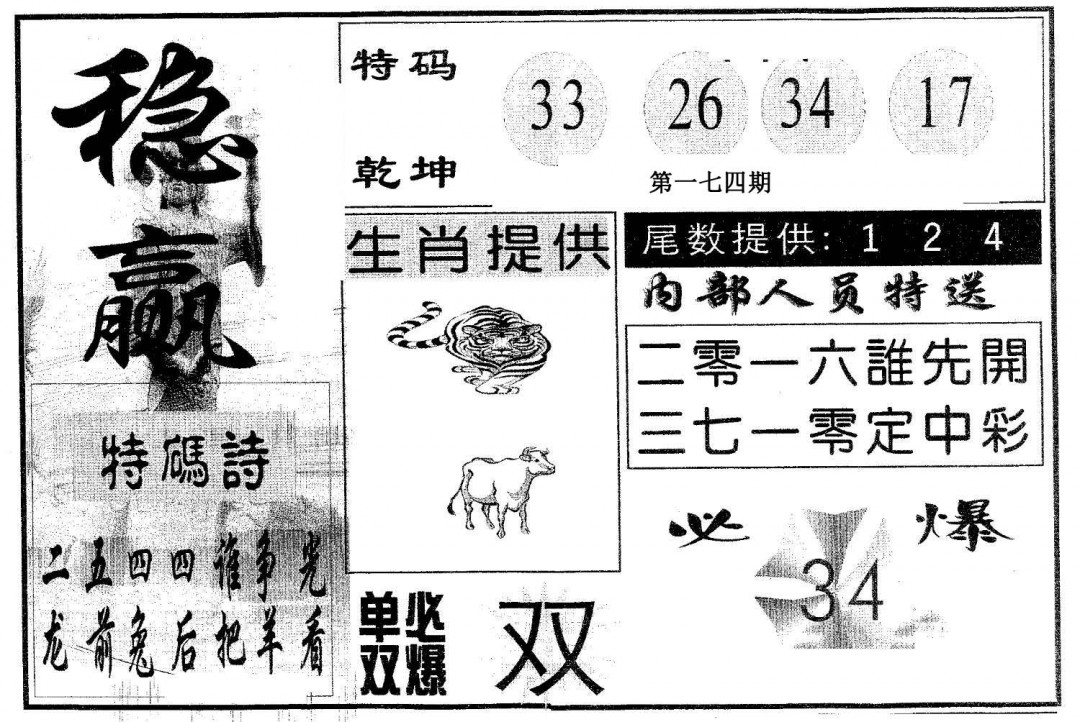 稳
赢
特碼詩
二五四四谁争光
龙前兔后把羊看
特码
乾坤
33 26 34 17
第一七四期
生肖提供
尾数提供: 1 2 4
内部人员特送
二零一六誰先開
三七一零定中彩
必爆
34
单双
必爆
双